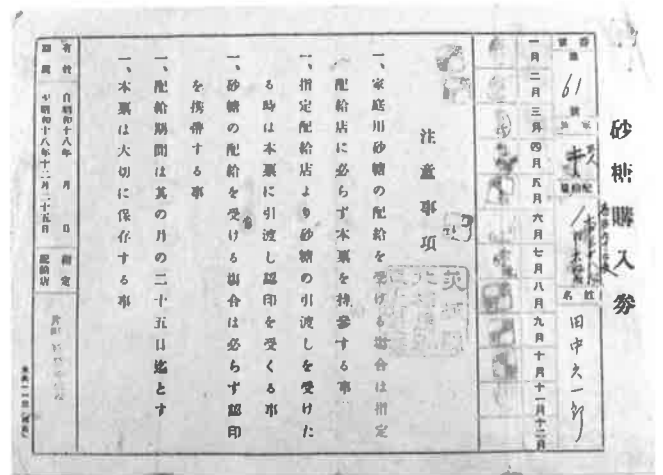 砂糖購入券
番號
第
61
號
姓名
田中久一郎
一月
二月
三月
四月
五月
六月
七月
八月
九月
十月
十一月
十二月
注意事項
一、家庭用砂糖の配給を受ける場合は指定
配給店に必らず本票を持參する事
一、指定配給店より砂糖の引渡しを受けた
る時は本票に引渡し認印を受くる事
一、砂糖の配給を受ける場合は必らず認印
を携帶する事
一、配給期間は其の月の二十五日迄とす
一、本票は大切に保存する事
有效期間
自昭和十八年 月 日
至昭和十八年十二月二十五日
指定配給店